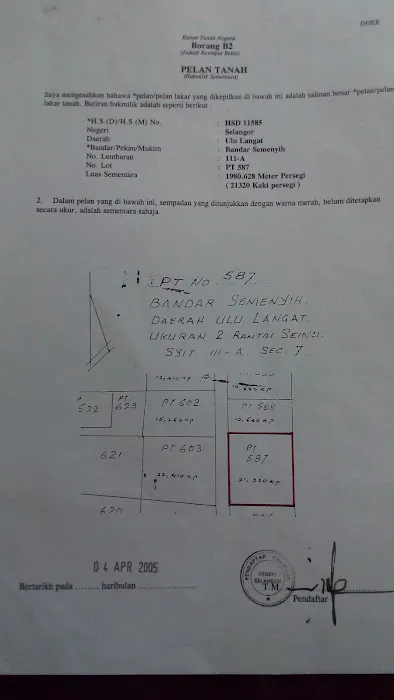 DHKK
Kanun Tanah Negara
Borang B2
(Jadual Keempat Belas)
PELAN TANAH
(Hakmilik Sementara)
Saya mengesahkan bahawa *pelan/pelan lakar yang dikepilkan di bawah ini adalah salinan benar *pelan/pelan
lakar tanah. Butiran hakmilik adalah seperti berikut :
*H.S (D)/H.S (M) No. : HSD 11585
Negeri : Selangor
Daerah : Ulu Langat
*Bandar/Pekan/Mukim : Bandar Semenyih
No. Lembaran : 111-A
No. Lot : PT 587
Luas Sementara : 1980.628 Meter Persegi
( 21320 Kaki persegi )
2. Dalam pelan yang di bawah ini, sempadan yang ditunjukkan dengan warna merah, belum ditetapkan
secara ukur, adalah sementara sahaja.
PT NO 587
BANDAR SEMENYIH.
DAERAH ULU LANGAT.
UKURAN 2 RANTAI SEINCI.
SYIT III-A. SEC 7.
PT
632 623
PT 602
PT 588
621
PT 603
22,410 K.P
PT
587
21,320 K.P.
620
04 APR 2005
Bertarikh pada ........ haribulan ..................
PENDAFTAR HAKMILIK
NEGERI
SELANGOR
T.M
Pendaftar